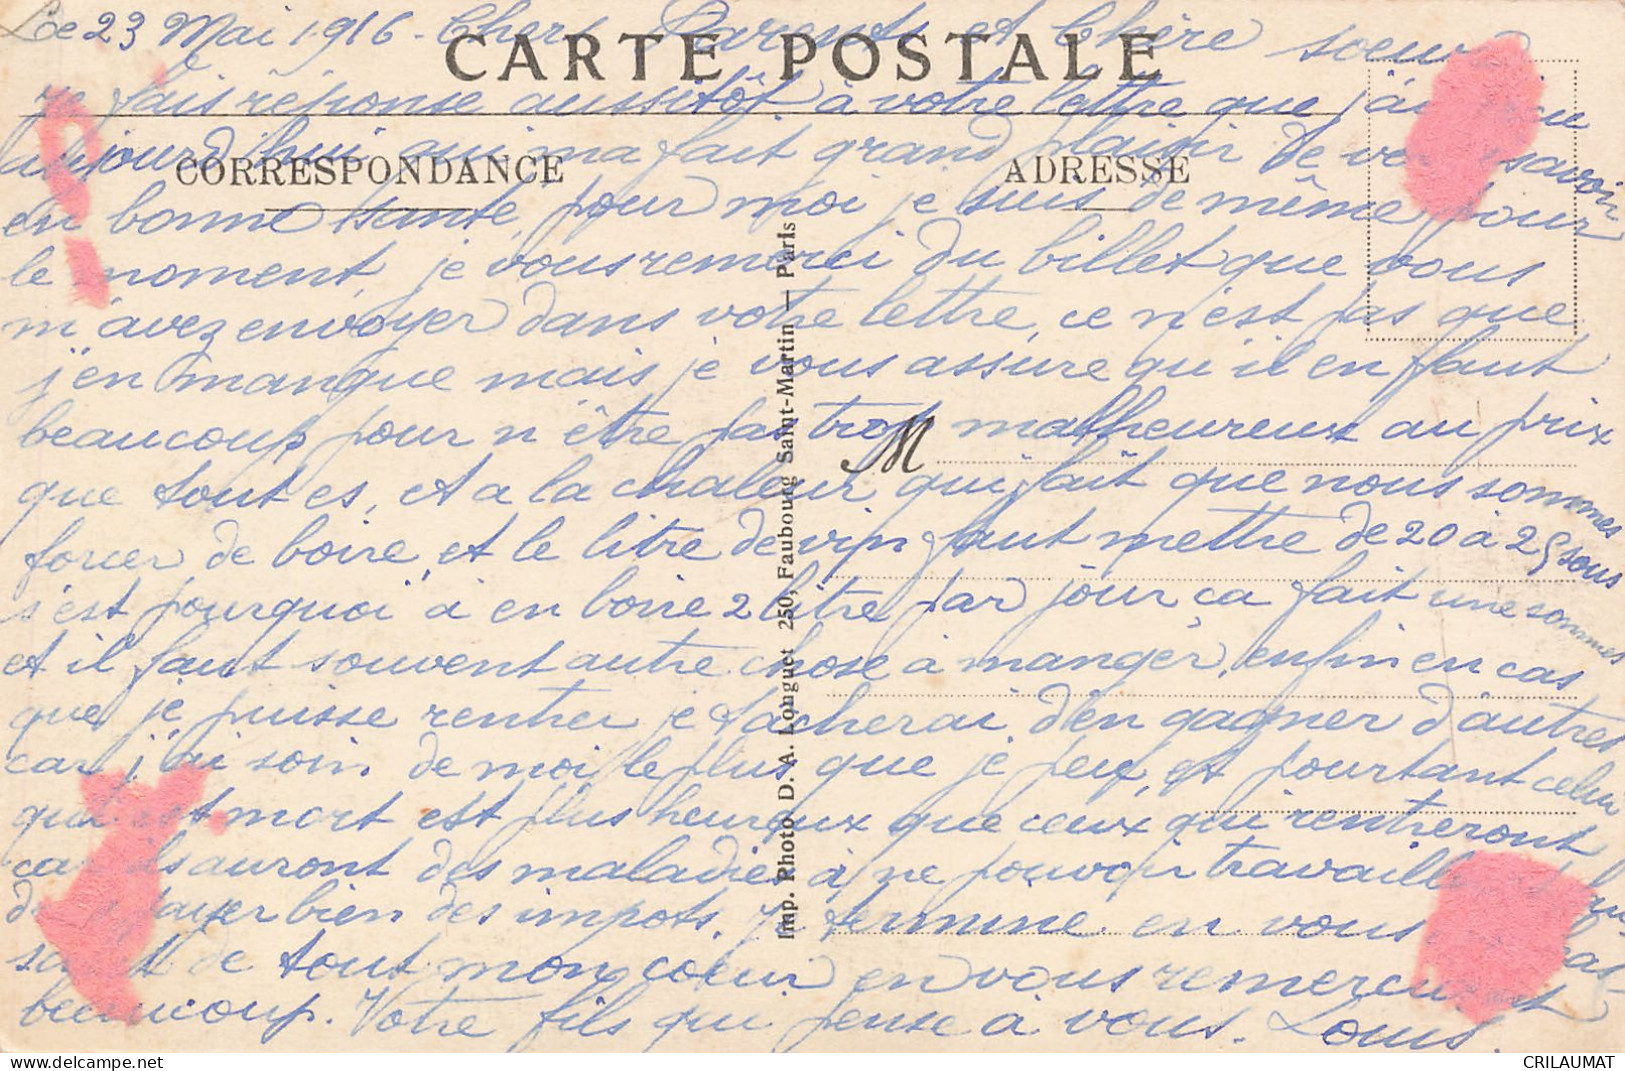 Le 23 Mai 1916 - Chers Parents et Chère soeur
CARTE POSTALE
je fais réponse aussitôt à votre lettre que j'ai
CORRESPONDANCE
ADRESSE
aujourd'hui qui m'a fait grand plaisir de savoir
en bonne santé, pour moi je suis de même pour
le moment, je vous remerci du billet que vous
m'avez envoyer dans votre lettre, ce n'est pas que
j'en manque mais je vous assure qu'il en faut
beaucoup pour n'être pas trop malheureux au prix
M
que tout es, et a la chaleur qui fait que nous sommes
forcer de boire, et le litre de vin faut mettre de 20 à 25 sous
s'est pourquoi à en boire 2 litre par jour ça fait une sommes
et il faut souvent autre chose à manger, enfin en cas
que je puisse rentrer je tacherai d'en gagner d'autres
car j'ai soin de moi le plus que je peux, et pourtant celui
qui est mort est plus heureux que ceux qui rentreront
car ils auront des maladies à ne pouvoir travailler
payer bien des impots. Je termine en vous
de tout mon coeur en vous remerciant
beaucoup. Votre fils qui pense à vous. Louis.
Imp. Rhoto. D. A. Longuet 250, Faubourg Saint-Martin — Paris
CRILAUMAT